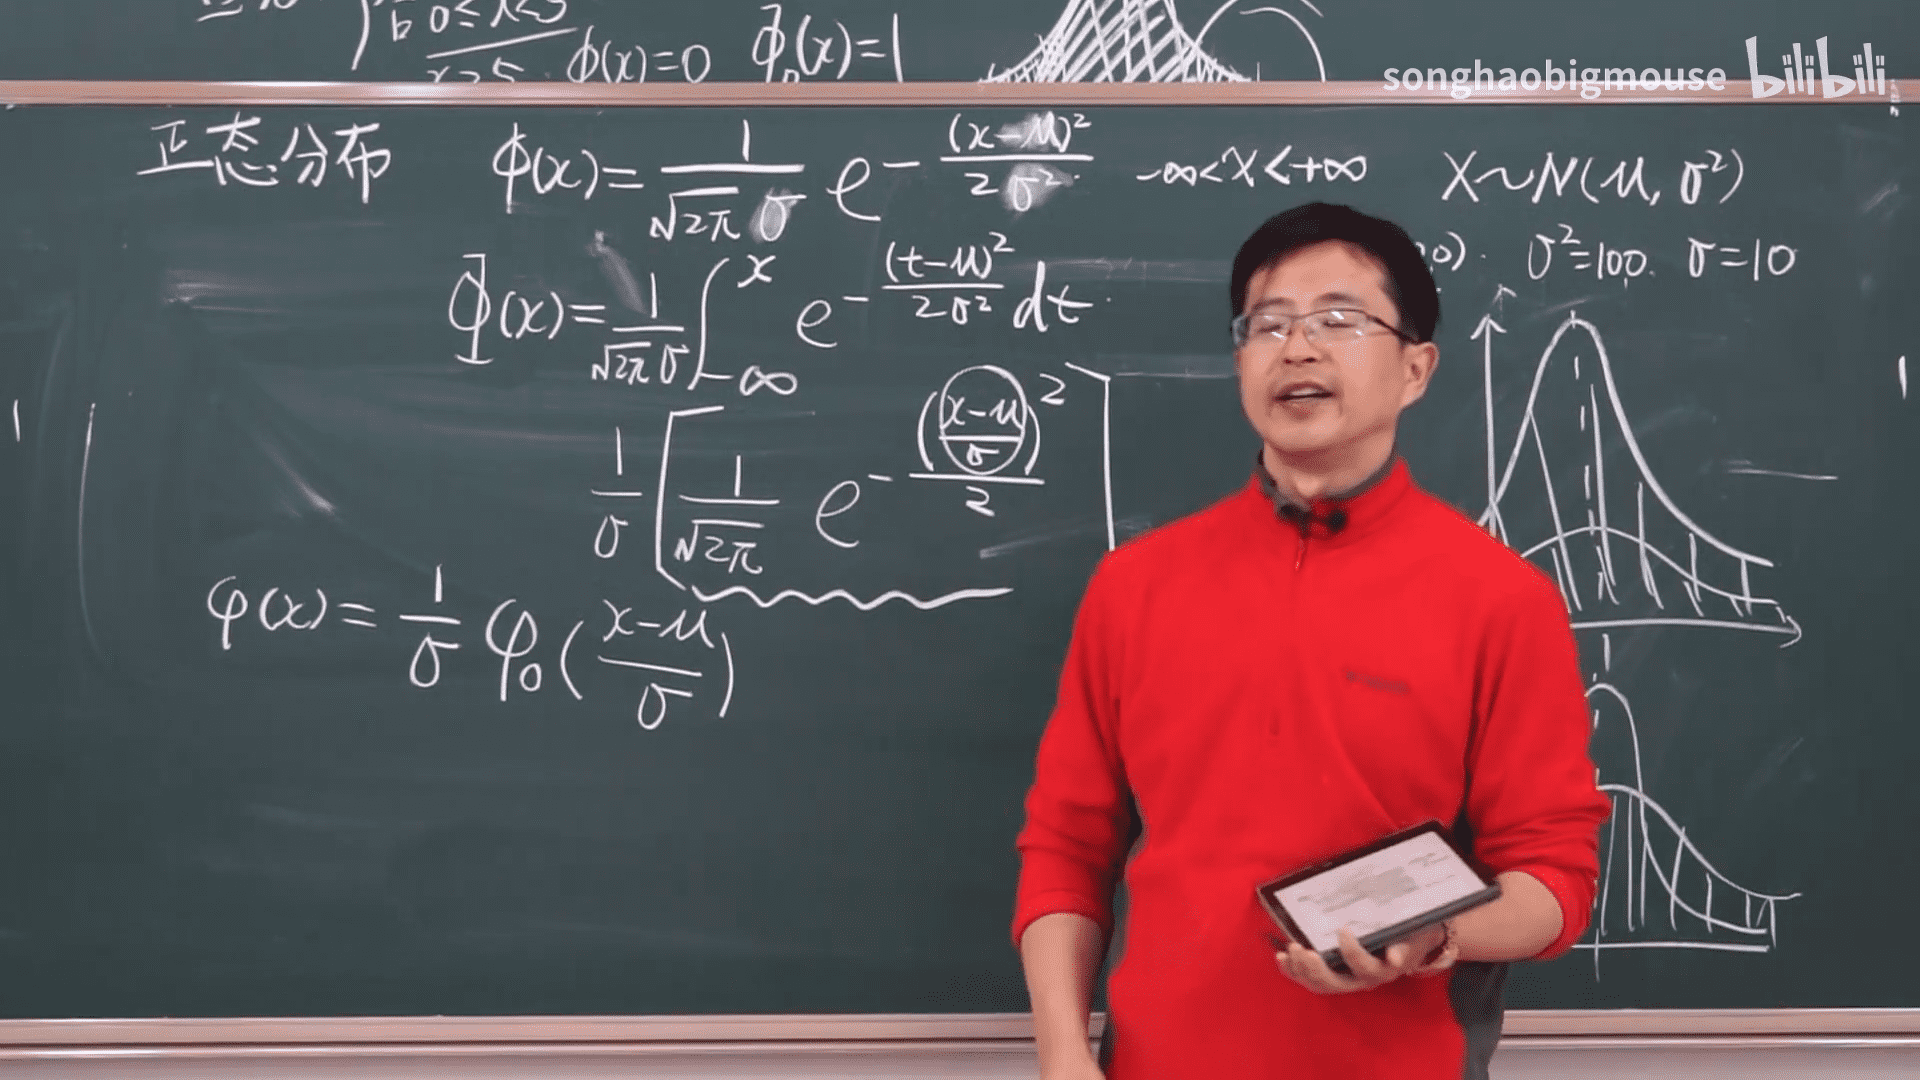 0≤x<5
x≥5. ϕ(x)=0 Φ₀(x)=1
songhaobigmouse bilibili
正态分布 ϕ(x)=\frac{1}{\sqrt{2π}σ} e^{-\frac{(x-μ)^2}{2σ^2}} -∞<x<+∞ X~N(μ, σ²)
0). σ²=100. σ=10
Φ(x)=\frac{1}{\sqrt{2π}σ}∫_{-∞}^{x} e^{-\frac{(t-μ)^2}{2σ^2}}dt.
\frac{1}{σ}[\frac{1}{\sqrt{2π}} e^{-\frac{(\frac{x-μ}{σ})^2}{2}}]
φ(x)=\frac{1}{σ}φ₀(\frac{x-μ}{σ})